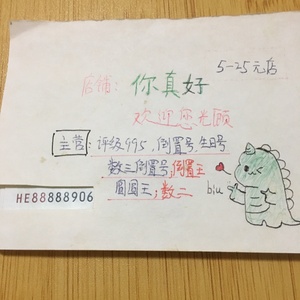 5-25元店
店铺：你真好
欢迎您光顾
主营：评级995，倒置号，生日号
数三倒置号，倒置王
圆圆王；数二
biu
HE88888906